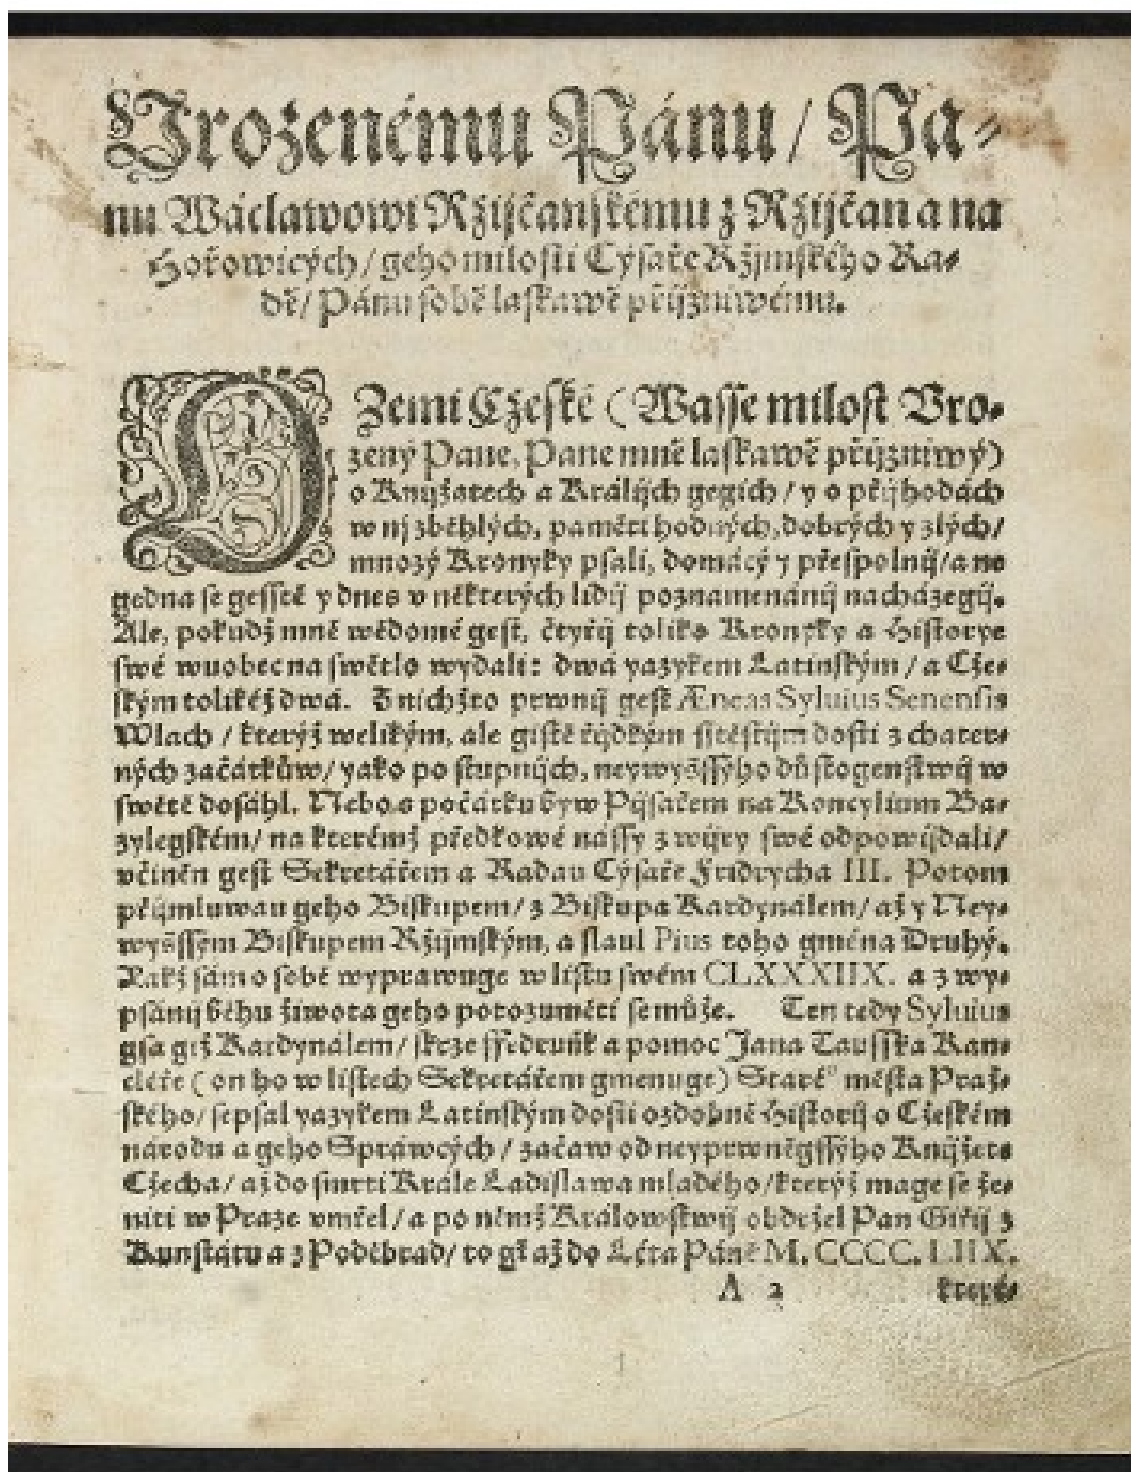 Vrozenému Pánu / Pa-
nu Wáclawowi Ržijčanskému z Ržijčan a na
Hořowicých / geho milosti Cýsaře Ržjmského Ra-
dě / Pánu sobě laskawě přijzniwému.
O Zemi Cžeské (Wasse milost Vro-
zený Pane, Pane mně laskawě přijzniwý)
o Knijžatech a Králijch gegich / y o přijhodách
w nj zběhlých, paměti hodných, dobrých y zlých /
mnozý Kronyky psali, domácý y přespolnij / a ne
gedna se gesstě y dnes v některých lidij poznamenánij nacházegij.
Ale, pokudž mně wědomé gest, čtyřij toliko Kronyky a Historye
swé wuobec na swětlo wydali: dwá yazykem Latinským / a Cže-
ským tolikéž dwá. Z nichžto prwnij gest Æneas Syluius Senensis
Wlach / kterýž welikým, ale gistě řijdkým sstěstijm dosti z chater-
ných začátkůw / yako po stupnijch, neywyšssýho důstogenstwij w
swětě dosáhl. Nebo s počátku byw Pijsařem na Koncylium Ba-
zylegském / na kterémž předkowé nássy z wijry swé odpowijdali /
včiněn gest Sekretářem a Radau Cýsaře Fridrycha III. Potom
přijmluwau geho Biskupem / z Biskupa Kardynálem / až y Ney-
wyšssým Biskupem Ržijmským, a slaul Pius toho gména Druhý.
Yakž sám o sobě wyprawuge w listu swém CLXXXIIX. a z wy-
psánij běhu žiwota geho porozuměti se může. Ten tedy Syluius
gsa giž Kardynálem / skrze ssedruňk a pomoc Jana Tausska Kan-
cléře (on ho w listech Sekretářem gmenuge) Staréº města Praž-
ského / sepsal yazykem Latinským dosti ozdobně Historij o Cžeském
národu a geho Spráwcých / začaw od neyprwněgssýho Knijžete
Cžecha / až do smrti Krále Ladislawa mladého / kterýž mage se že-
niti w Praze vmřel / a po němž Králowstwij obdržel Pan Giřij z
Kunstátu a z Poděbrad / to gt až do Léta Páně M. CCCC. LIIX.
A 2 které-